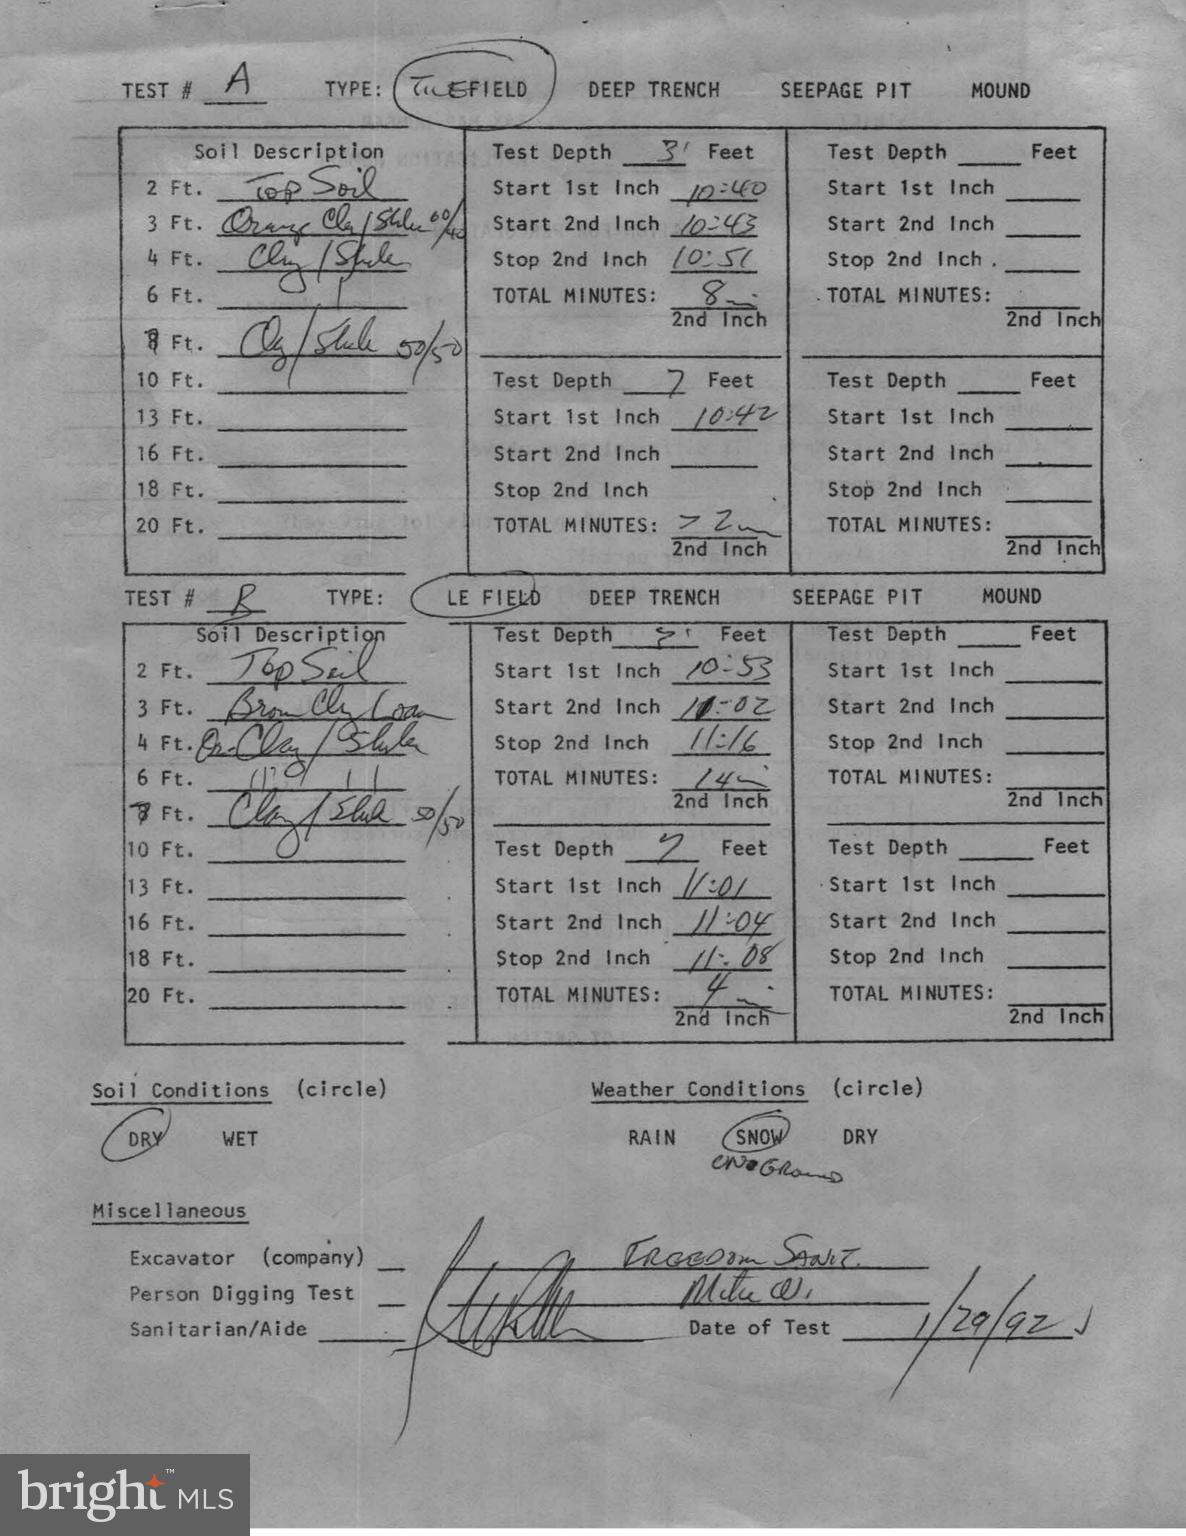 TEST # A TYPE: TILEFIELD DEEP TRENCH SEEPAGE PIT MOUND
Soil Description Test Depth 3' Feet Test Depth Feet
2 Ft. Top Soil Start 1st Inch 10:40 Start 1st Inch
3 Ft. Orange Clay/Shale 60/40 Start 2nd Inch 10:43 Start 2nd Inch
4 Ft. Clay/Shale Stop 2nd Inch 10:51 Stop 2nd Inch
6 Ft. TOTAL MINUTES: 8 TOTAL MINUTES:
2nd Inch 2nd Inch
Ft. Clay/Shale 50/50
10 Ft. Test Depth 7 Feet Test Depth Feet
13 Ft. Start 1st Inch 10:42 Start 1st Inch
16 Ft. Start 2nd Inch Start 2nd Inch
18 Ft. Stop 2nd Inch Stop 2nd Inch
20 Ft. TOTAL MINUTES: > 2 TOTAL MINUTES:
2nd Inch 2nd Inch
TEST # B TYPE: LE FIELD DEEP TRENCH SEEPAGE PIT MOUND
Soil Description Test Depth Feet Test Depth Feet
2 Ft. Top Soil Start 1st Inch 10:53 Start 1st Inch
3 Ft. Brown Clay Loam Start 2nd Inch 11:02 Start 2nd Inch
4 Ft. Or-Clay/Shale Stop 2nd Inch 11:16 Stop 2nd Inch
6 Ft. TOTAL MINUTES: 14 TOTAL MINUTES:
2nd Inch 2nd Inch
Ft. Clay/Shale 50/50
10 Ft. Test Depth 7 Feet Test Depth Feet
13 Ft. Start 1st Inch 11:01 Start 1st Inch
16 Ft. Start 2nd Inch 11:04 Start 2nd Inch
18 Ft. Stop 2nd Inch 11:08 Stop 2nd Inch
20 Ft. TOTAL MINUTES: 4 TOTAL MINUTES:
2nd Inch 2nd Inch
Soil Conditions (circle) Weather Conditions (circle)
DRY WET RAIN SNOW DRY
ON GROUND
Miscellaneous
Excavator (company) FREEDOM SANIT.
Person Digging Test Mike W.
Sanitarian/Aide Date of Test 1/29/92
bright MLS